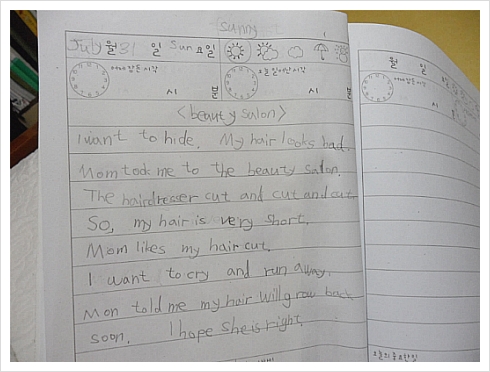 sunny
July 월 31 일 Sun 요일
어제 잠든 시각 오늘 일어난 시각
시 시 분
<beauty salon>
I want to hide. My hair looks bad.
Mom took me to the beauty salon.
The hairdresser cut and cut and cut
So, my hair is very short.
Mom likes my hair cut.
I want to cry and run away.
Mon told me my hair will grow back
soon. I hope she is right.
월 일
시